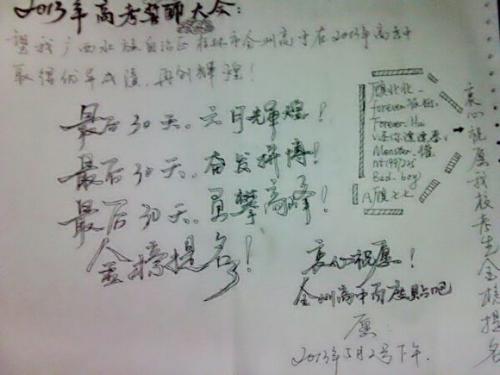 2013年高考誓师大会:
望我广西壮族自治区桂林市全州高中在2013年高考中
取得优异成绩,再创辉煌!
最后30天。六月辉煌!
最后30天。奋发拼博!
最后30天。勇攀高峰!
金榜提名!
forever
Forever. Hu
Monster.
Bad. boy
衷心祝愿我校考生金榜提名
衷心祝愿!
全州高中百度贴吧
愿:
2013年5月2号下午.